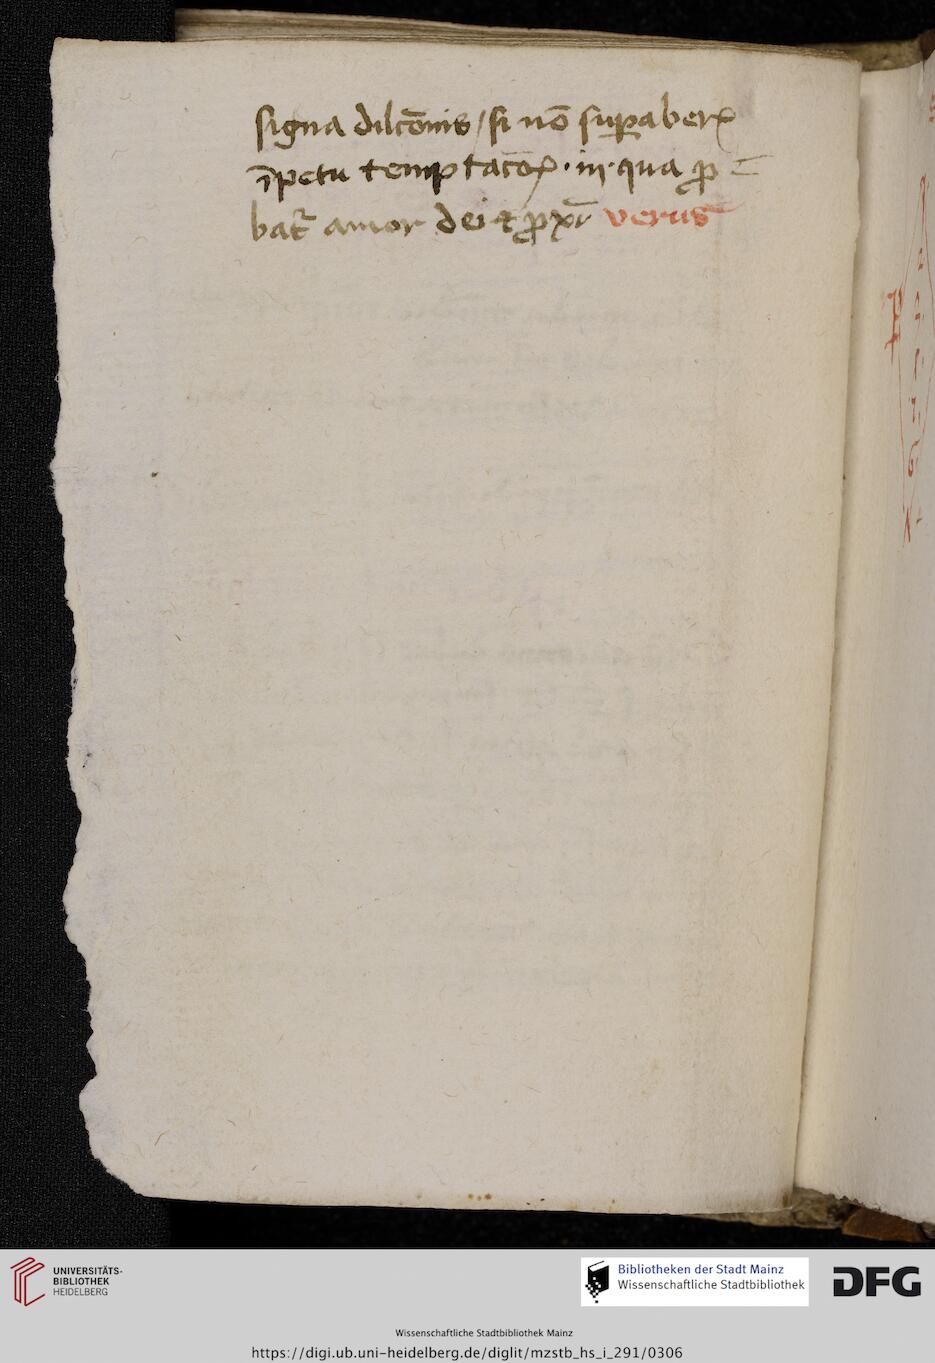 signa dilcōnis / si nō suꝑaberꝭ
īpetu temptacōꝭ · in · qua ꝓ
bat᷑ amor dei ⁊ ꝓxī verus
UNIVERSITÄTS-
BIBLIOTHEK
HEIDELBERG
Bibliotheken der Stadt Mainz
Wissenschaftliche Stadtbibliothek
DFG
Wissenschaftliche Stadtbibliothek Mainz
https://digi.ub.uni-heidelberg.de/diglit/mzstb_hs_i_291/0306